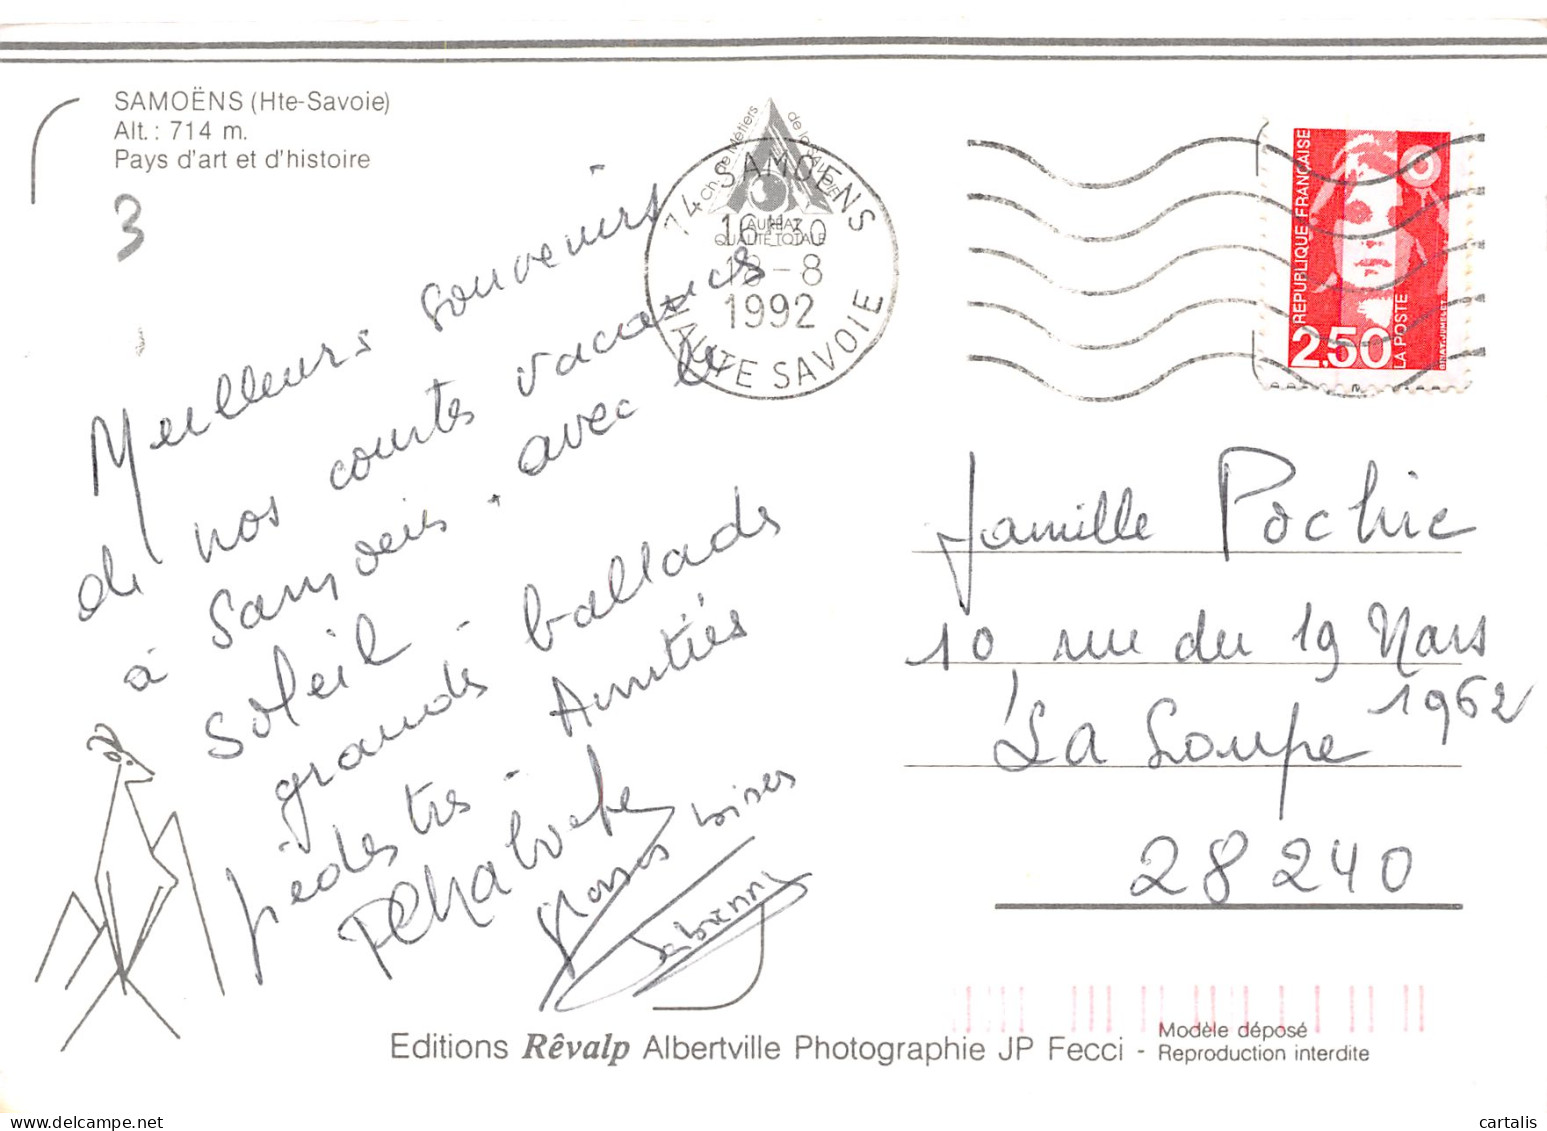 SAMOËNS (Hte-Savoie)
Alt. : 714 m.
Pays d'art et d'histoire
3
Meilleurs souvenirs
de nos courtes vacances
à Samoëns. avec le
soleil -
grandes ballades
pédestres -
Amitiés
bises
74 SAMOENS
16H30
18-8
1992
HAUTE SAVOIE
Ch. de Métiers de la SAVOIE
LAURÉAT
QUALITÉ TOTALE
REPUBLIQUE FRANÇAISE
2,50
LA POSTE
famille Pochic
10 rue du 19 Mars
1962
La Loupe
28240
Editions Rêvalp Albertville Photographie JP Fecci -
Modèle déposé
Reproduction interdite
cartalis